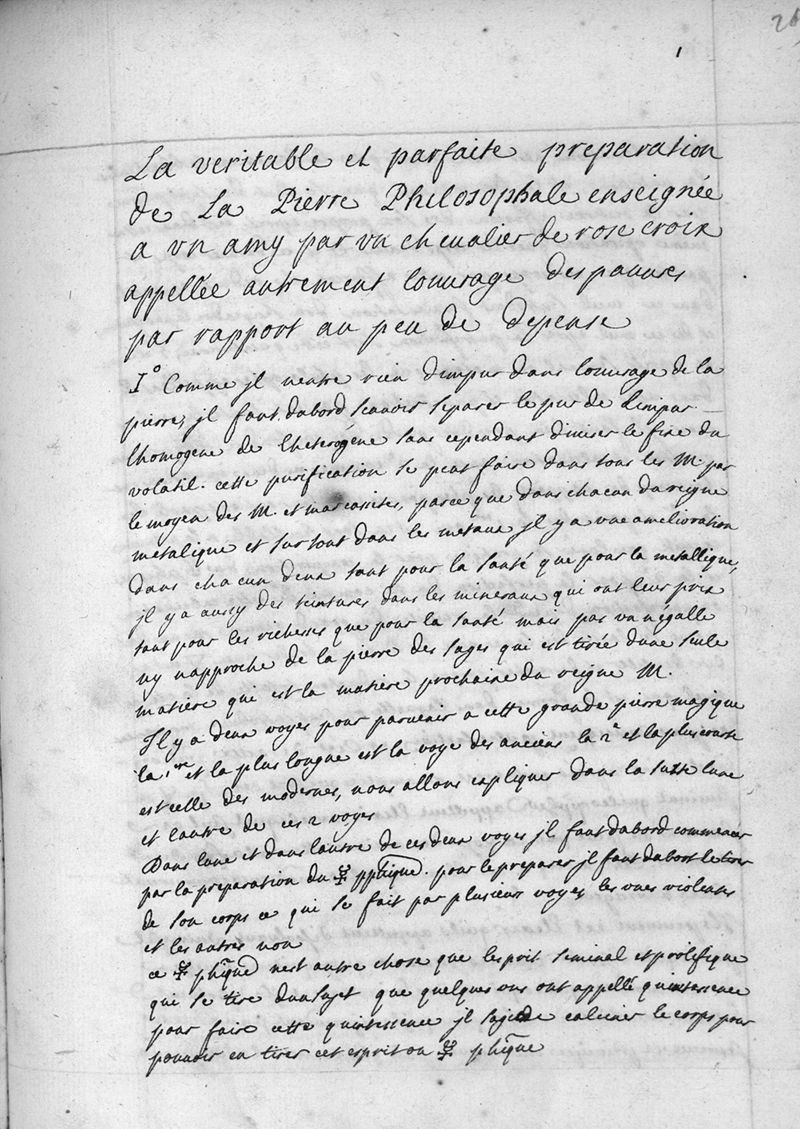 26
1
La veritable et parfaite preparation
de La Pierre Philosophale enseignée
a vn amy par vn chevalier de rose croix
appellée autrement louurage des pauures
par rapport au peu de depense
1° Comme jl nentre rien dimpur dans louurage de la
pierre, jl faut dabord scauoir separer le pur de limpur
lhomogene de lheterogéne sans cependant diuiser le fixe du
volatil. cette purification se peut faire dans tous les M. par
le moyen des M. et marcassites, parce que dans chacun du reigne
metalique et sur tout dans les metaux jl y a vne amelioration
dans chacun deux tant pour la santé que pour la metallique,
jl y a aussy des teintures dans les mineraux qui ont leur prix
tant pour les richesses que pour la santé mais pas vn négalle
ny napproche de la pierre des sages qui est tirée dune seule
matiére qui est la matiére prochaine du reigne M.
Jl y a deux voyes pour paruenir a cette grande pierre magique
la 1re et la plus longue est la voye des anciens la 2e et la plus courte
est celle des modernes, nous allons expliquer dans la suitte lune
et lautre de ces 2 voyes
Dans lune et dans lautre de ces deux voyes jl faut dabord commencer
par la preparation du ☿ pphique. pour le preparer jl faut dabort le tirer
de son corps ce qui se fait par plusieurs voyes les vnes violentes
et les autres non
ce ☿ phique nest autre chose que lesprit seminal et prolifique
qui se tire dun sujet que quelques vns ont appellé quintessence
pour faire cette quintessence jl sagit de calciner le corps pour
pouuoir en tirer cet esprit ou ☿ phique